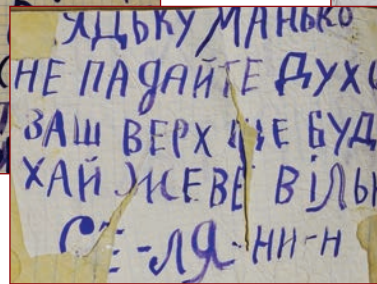 ЯДЬКУ МАНЬКО
НЕ ПАДАЙТЕ ДУХО
ВАШ ВЕРХ ЩЕ БУД
ХАЙ ЖЕВЕ ВІЛЬН
СЕ-ЛЯ-НИ-Н